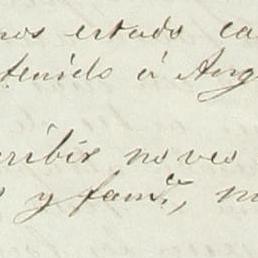 nos estado ca
tenido á Ang
cribir no veo
y fam.ª, n